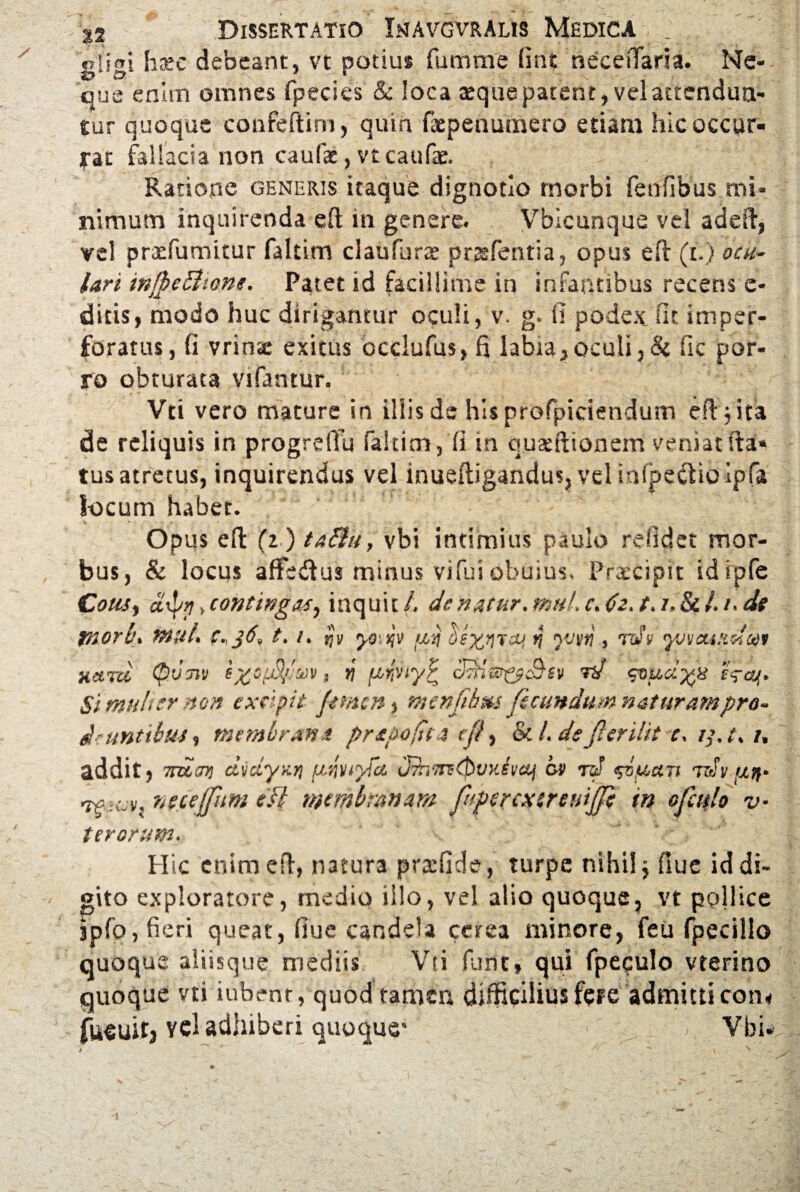 22 DISSERTATIO INAVGVRALIS MEDICA
gligi hæc debeant, vt potius ſumme ſint neceſſaria. Ne-
que enim omnes ſpecies & loca æque patent, vel attendun-
tur quoque confeſtim, quin ſæpenumero etiam hic occur-
rat fallacia non cauſæ, vt cauſæ.
Ratione GENERIS itaque dignotio morbi ſenſibus mi-
nimum inquirenda eſt in genere. Vbicunque vel adeſt,
vel præſumitur ſaltim clauſuræ præſentia, opus eſt (1.) ocu-
lari inſpectione. Patet id facillime in infantibus recens e-
ditis, modo huc dirigantur oculi, v. g. ſi podex ſit imper-
foratus, ſi vrinæ exitus occluſus, ſi labia, oculi, & ſic por-
ro obturata viſantur.
Vti vero mature in illis de his proſpiciendum eſt; ita
de reliquis in progreſſu ſaltim, ſi in quæſtionem veniat ſta-
tus atretus, inquirendus vel inueſtigandus, vel inſpectio ipſa
locum habet.
Opus eſt (2.) tactu, vbi intimius paulo reſidet mor-
bus, & locus affectus minus viſui obuius. Præcipit id ipſe
Cous, ἁψη, contingas, inquit l. de natur. mul. c. 62. t. 1. & l. 1. de
morb. mul. c. 36. t. 1. ἢν γονὴν μὴ δέχηται ἡ γυνὴ, τῶν γυναικείων
κατὰ φύσιν ἐχομένων, ἡ μῆνιγξ ἐπίπροσθεν τῦ στομάχυ ἔσται.
Si mulier non excipit ſemen, menſibus ſecundum naturam pro-
deuntibus, membrana præpoſita eſt, & l. de ſterilit e. 13. t. 1.
addit, πᾶση ἀνάγκη μήνιγγα ἐπιπεφυκέναι ἐν τῷ στόματι τῶν μη-
τρέων, neceſſum eſt membranam ſupercxtreuiſſe in oſculo v-
terorum.
Hic enim eſt, natura præſide, turpe nihil; ſiue id di-
gito exploratore, medio illo, vel alio quoque, vt pollice
ipſo, fieri queat, ſiue candela cerea minore, ſeu ſpecillo
quoque aliisque mediis Vti ſunt, qui ſpeculo vterino
quoque vti iubent, quod tamen difficilius fere admitti con-
ſueuit, vel adhiberi quoque. Vbi-